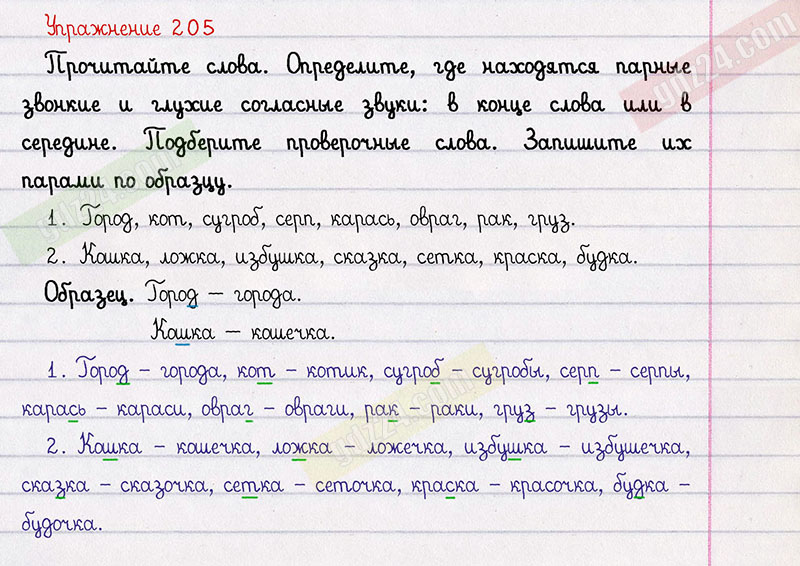 Упражнение 205
Прочитайте слова. Определите, где находятся парные
звонкие и глухие согласные звуки: в конце слова или в
середине. Подберите проверочные слова. Запишите их
парами по образцу.
1. Город, кот, сугроб, серп, карась, овраг, рак, груз.
2. Кошка, ложка, избушка, сказка, сетка, краска, будка.
Образец. Город – города.
Кошка – кошечка.
1. Город – города, кот – котик, сугроб – сугробы, серп – серпы,
карась – караси, овраг – овраги, рак – раки, груз – грузы.
2. Кошка – кошечка, ложка – ложечка, избушка – избушечка,
сказка – сказочка, сетка – сеточка, краска – красочка, будка –
будочка.
gdz24.com
gdz24.com
gdz24.com